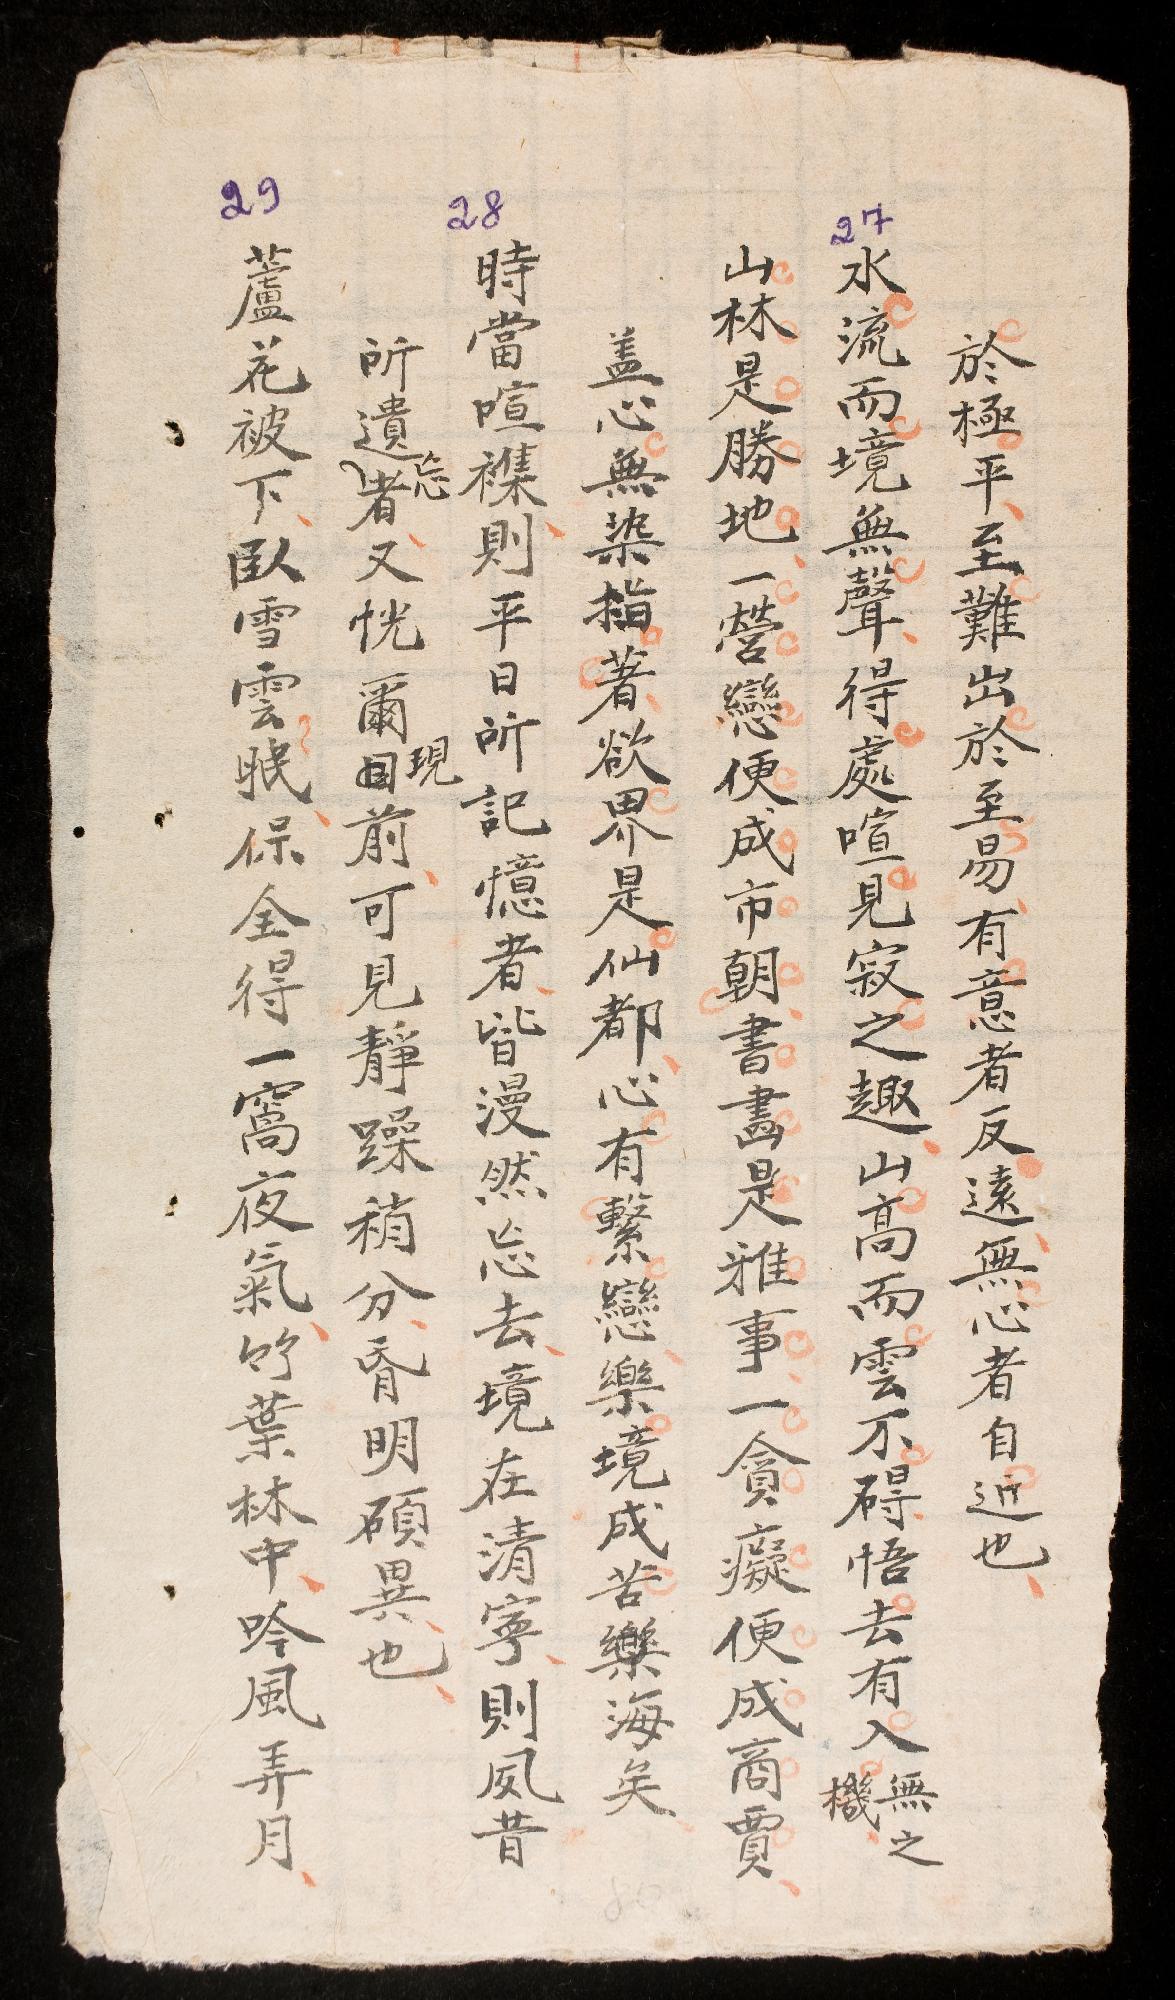 於極平至難出於至易有意者反遠無心者自近也
27
水流而境無聲得處喧見寂之趣山高而雲不碍悟去有入無之機
山林是勝地一營戀便成市朝書畫是雅事一貪癡便成商賈
盖心無染指著欲界是仙都心有繫戀樂境成苦樂海矣
28
時當喧襍則平日所記憶者皆漫然忘去境在清寧則夙昔
所遺忘者又恍爾現前可見靜躁稍分昏明碩異也
29
蘆花被下臥雪雲眠保全得一窩夜氣竹葉林中吟風弄月